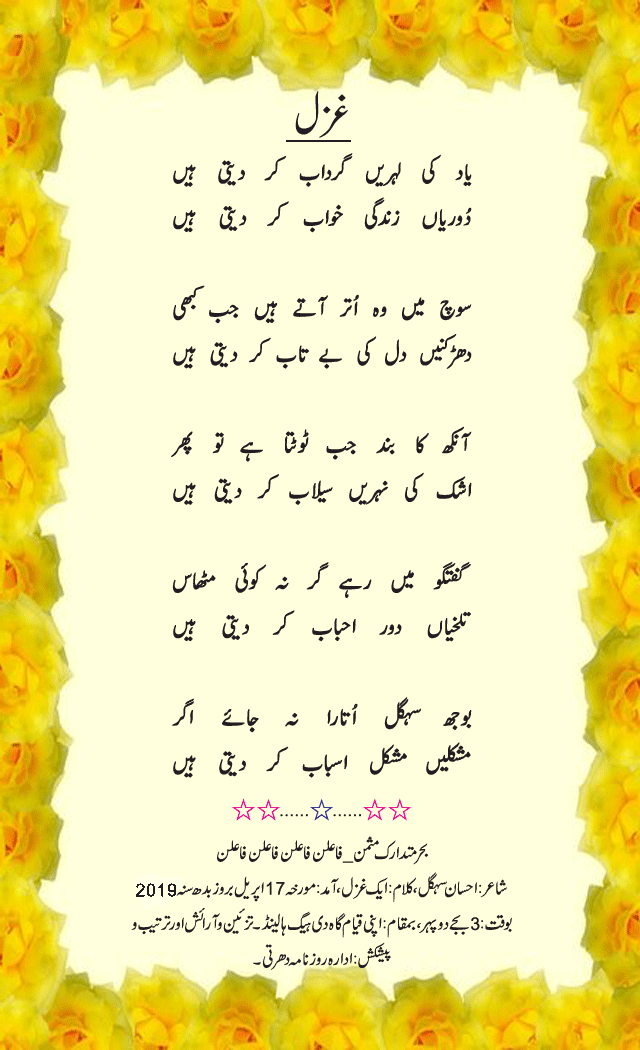 غزل
یاد کی لہریں گرداب کر دیتی ہیں
دُوریاں زندگی خواب کر دیتی ہیں
سوچ میں وہ اُتر آتے ہیں جب کبھی
دھڑکنیں دل کی بے تاب کر دیتی ہیں
آنکھ کا بند جب ٹوٹتا ہے تو پھر
اشک کی نہریں سیلاب کر دیتی ہیں
گفتگو میں رہے گر نہ کوئی مٹھاس
تلخیاں دور احباب کر دیتی ہیں
بوجھ سہگل اُتارا نہ جائے اگر
مشکلیں مشکل اسباب کر دیتی ہیں
☆☆......☆......☆☆
بحر متدارک مثمن_فاعلن فاعلن فاعلن فاعلن
شاعر:احسان سہگل، کلام:ایک غزل، آمد:مورخہ 17 اپریل بروز بدھ سنہ 2019
بوقت:3 بجے دوپہر، بمقام:اپنی قیام گاہ دی ہیگ ہالینڈ۔ تزئین و آرائش اور ترتیب و
پیشکش:ادارہ روزنامہ دھرتی۔